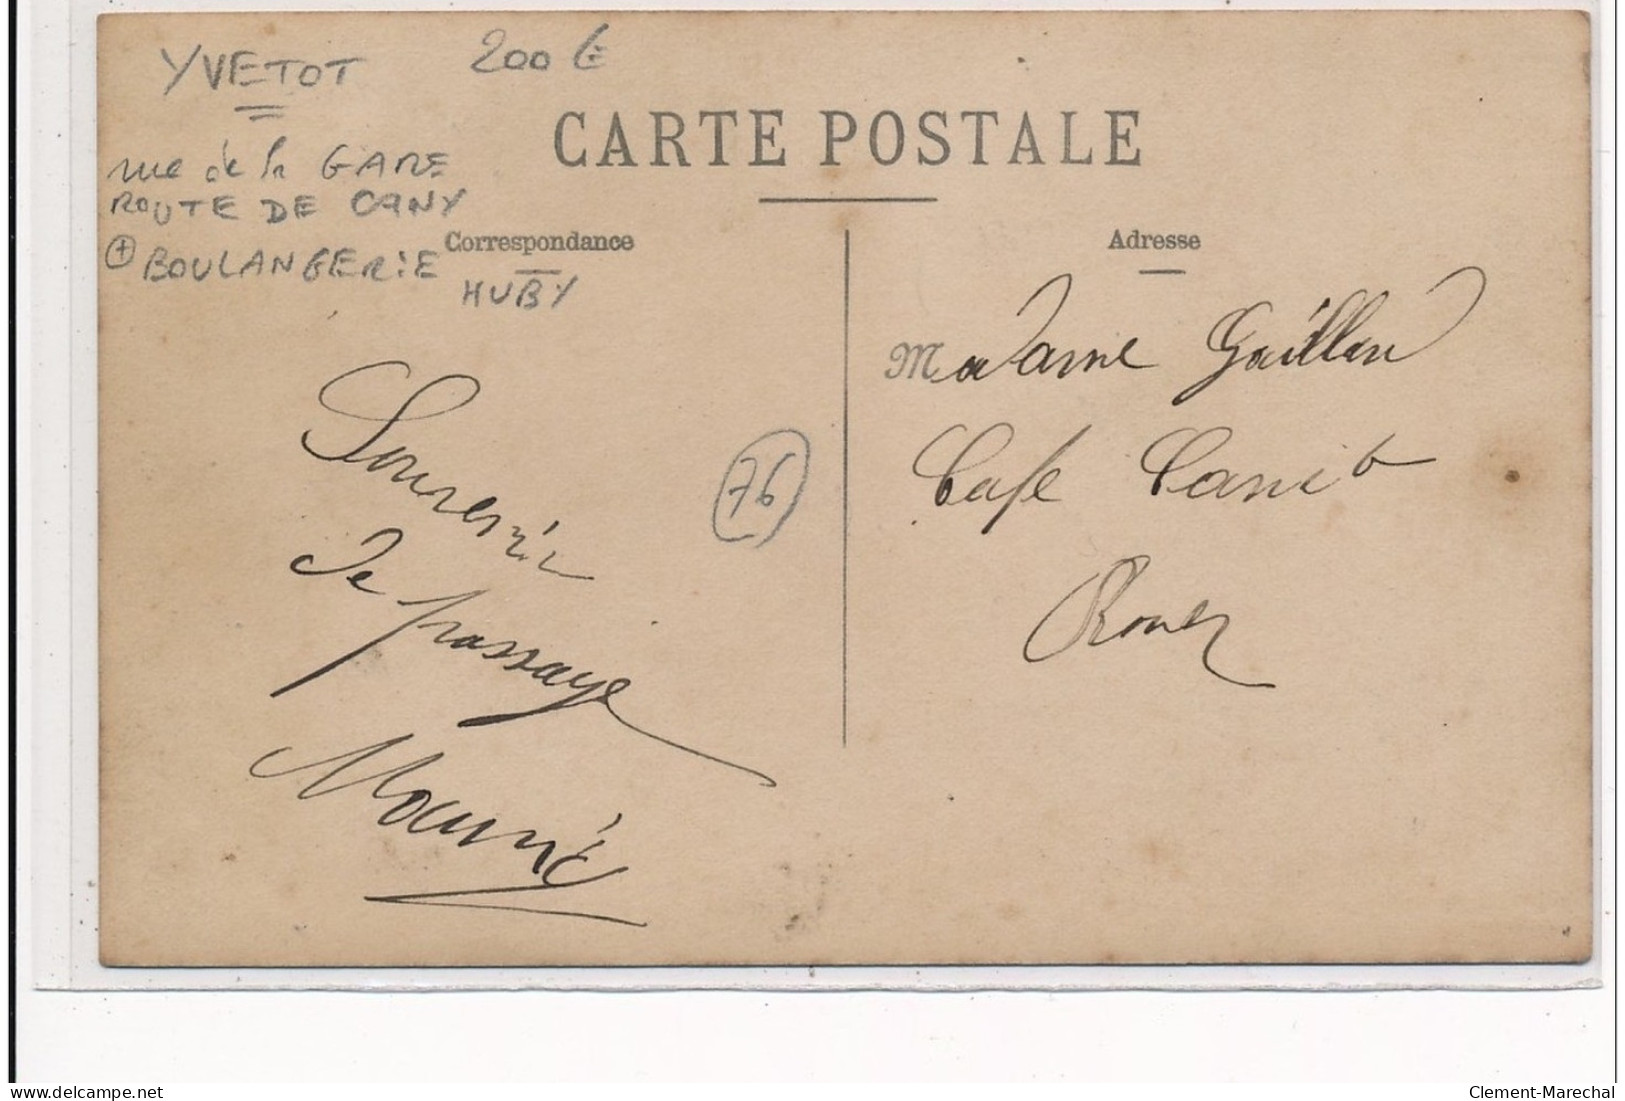 YVETOT 200 €
CARTE POSTALE
rue de la GARE
ROUTE DE CANY
+ BOULANGERIE
HUBY
Correspondance
Souvenir
de passage
76
Adresse
Madame
Café
Rouen
delcampe.net
Clement-Marechal